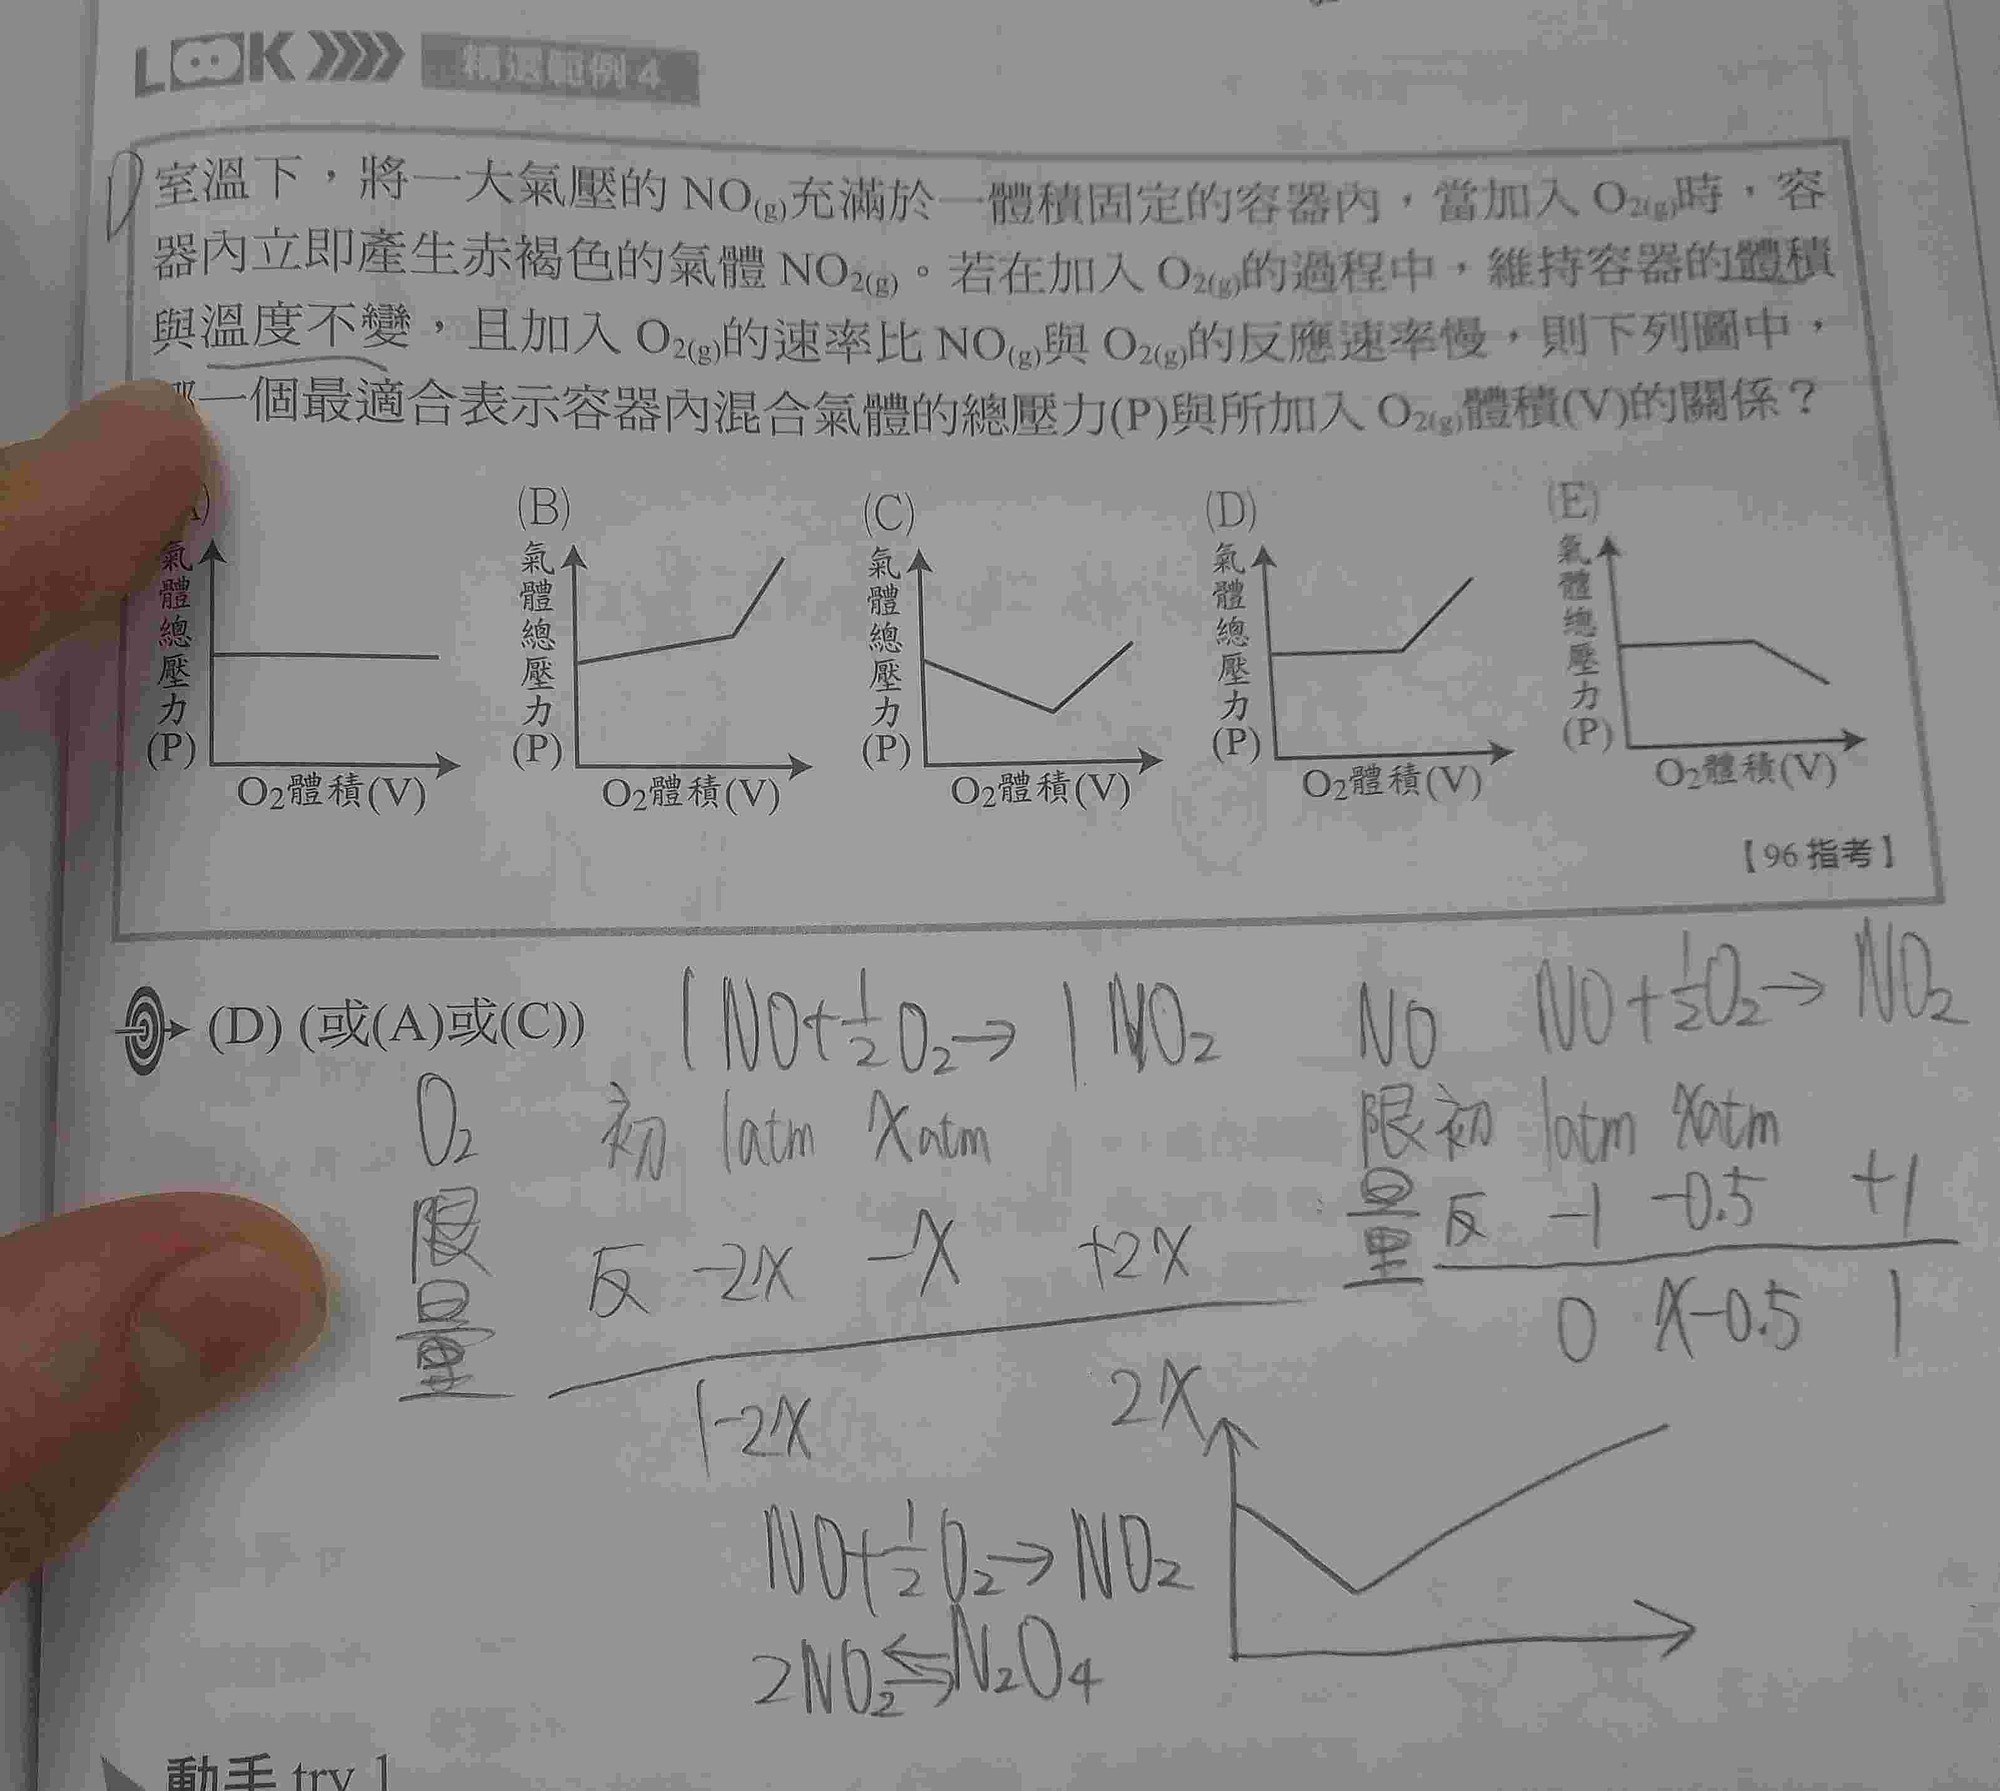 LOOK 精選範例 4
室溫下，將一大氣壓的 NO(g)充滿於一體積固定的容器內，當加入 O2(g)時，容
器內立即產生赤褐色的氣體 NO2(g)。若在加入 O2(g)的過程中，維持容器的體積
與溫度不變，且加入 O2(g)的速率比 NO(g)與 O2(g)的反應速率慢，則下列圖中，
一個最適合表示容器內混合氣體的總壓力(P)與所加入 O2(g)體積(V)的關係？
(B) (C) (D) (E)
氣體總壓力(P) 氣體總壓力(P) 氣體總壓力(P) 氣體總壓力(P) 氣體總壓力(P)
O2體積(V) O2體積(V) O2體積(V) O2體積(V) O2體積(V)
【96 指考】
(D) (或(A)或(C))
1 NO+1/2 O2→ 1 NO2
O2限量
初 1atm xatm
反 -2x -x +2x
1-2x 2x
NO限量
NO+1/2O2→ NO2
初 1atm xatm
反 -1 -0.5 +1
0 x-0.5 1
NO+1/2 O2→ NO2
2NO2⇆N2O4
動手 try 1